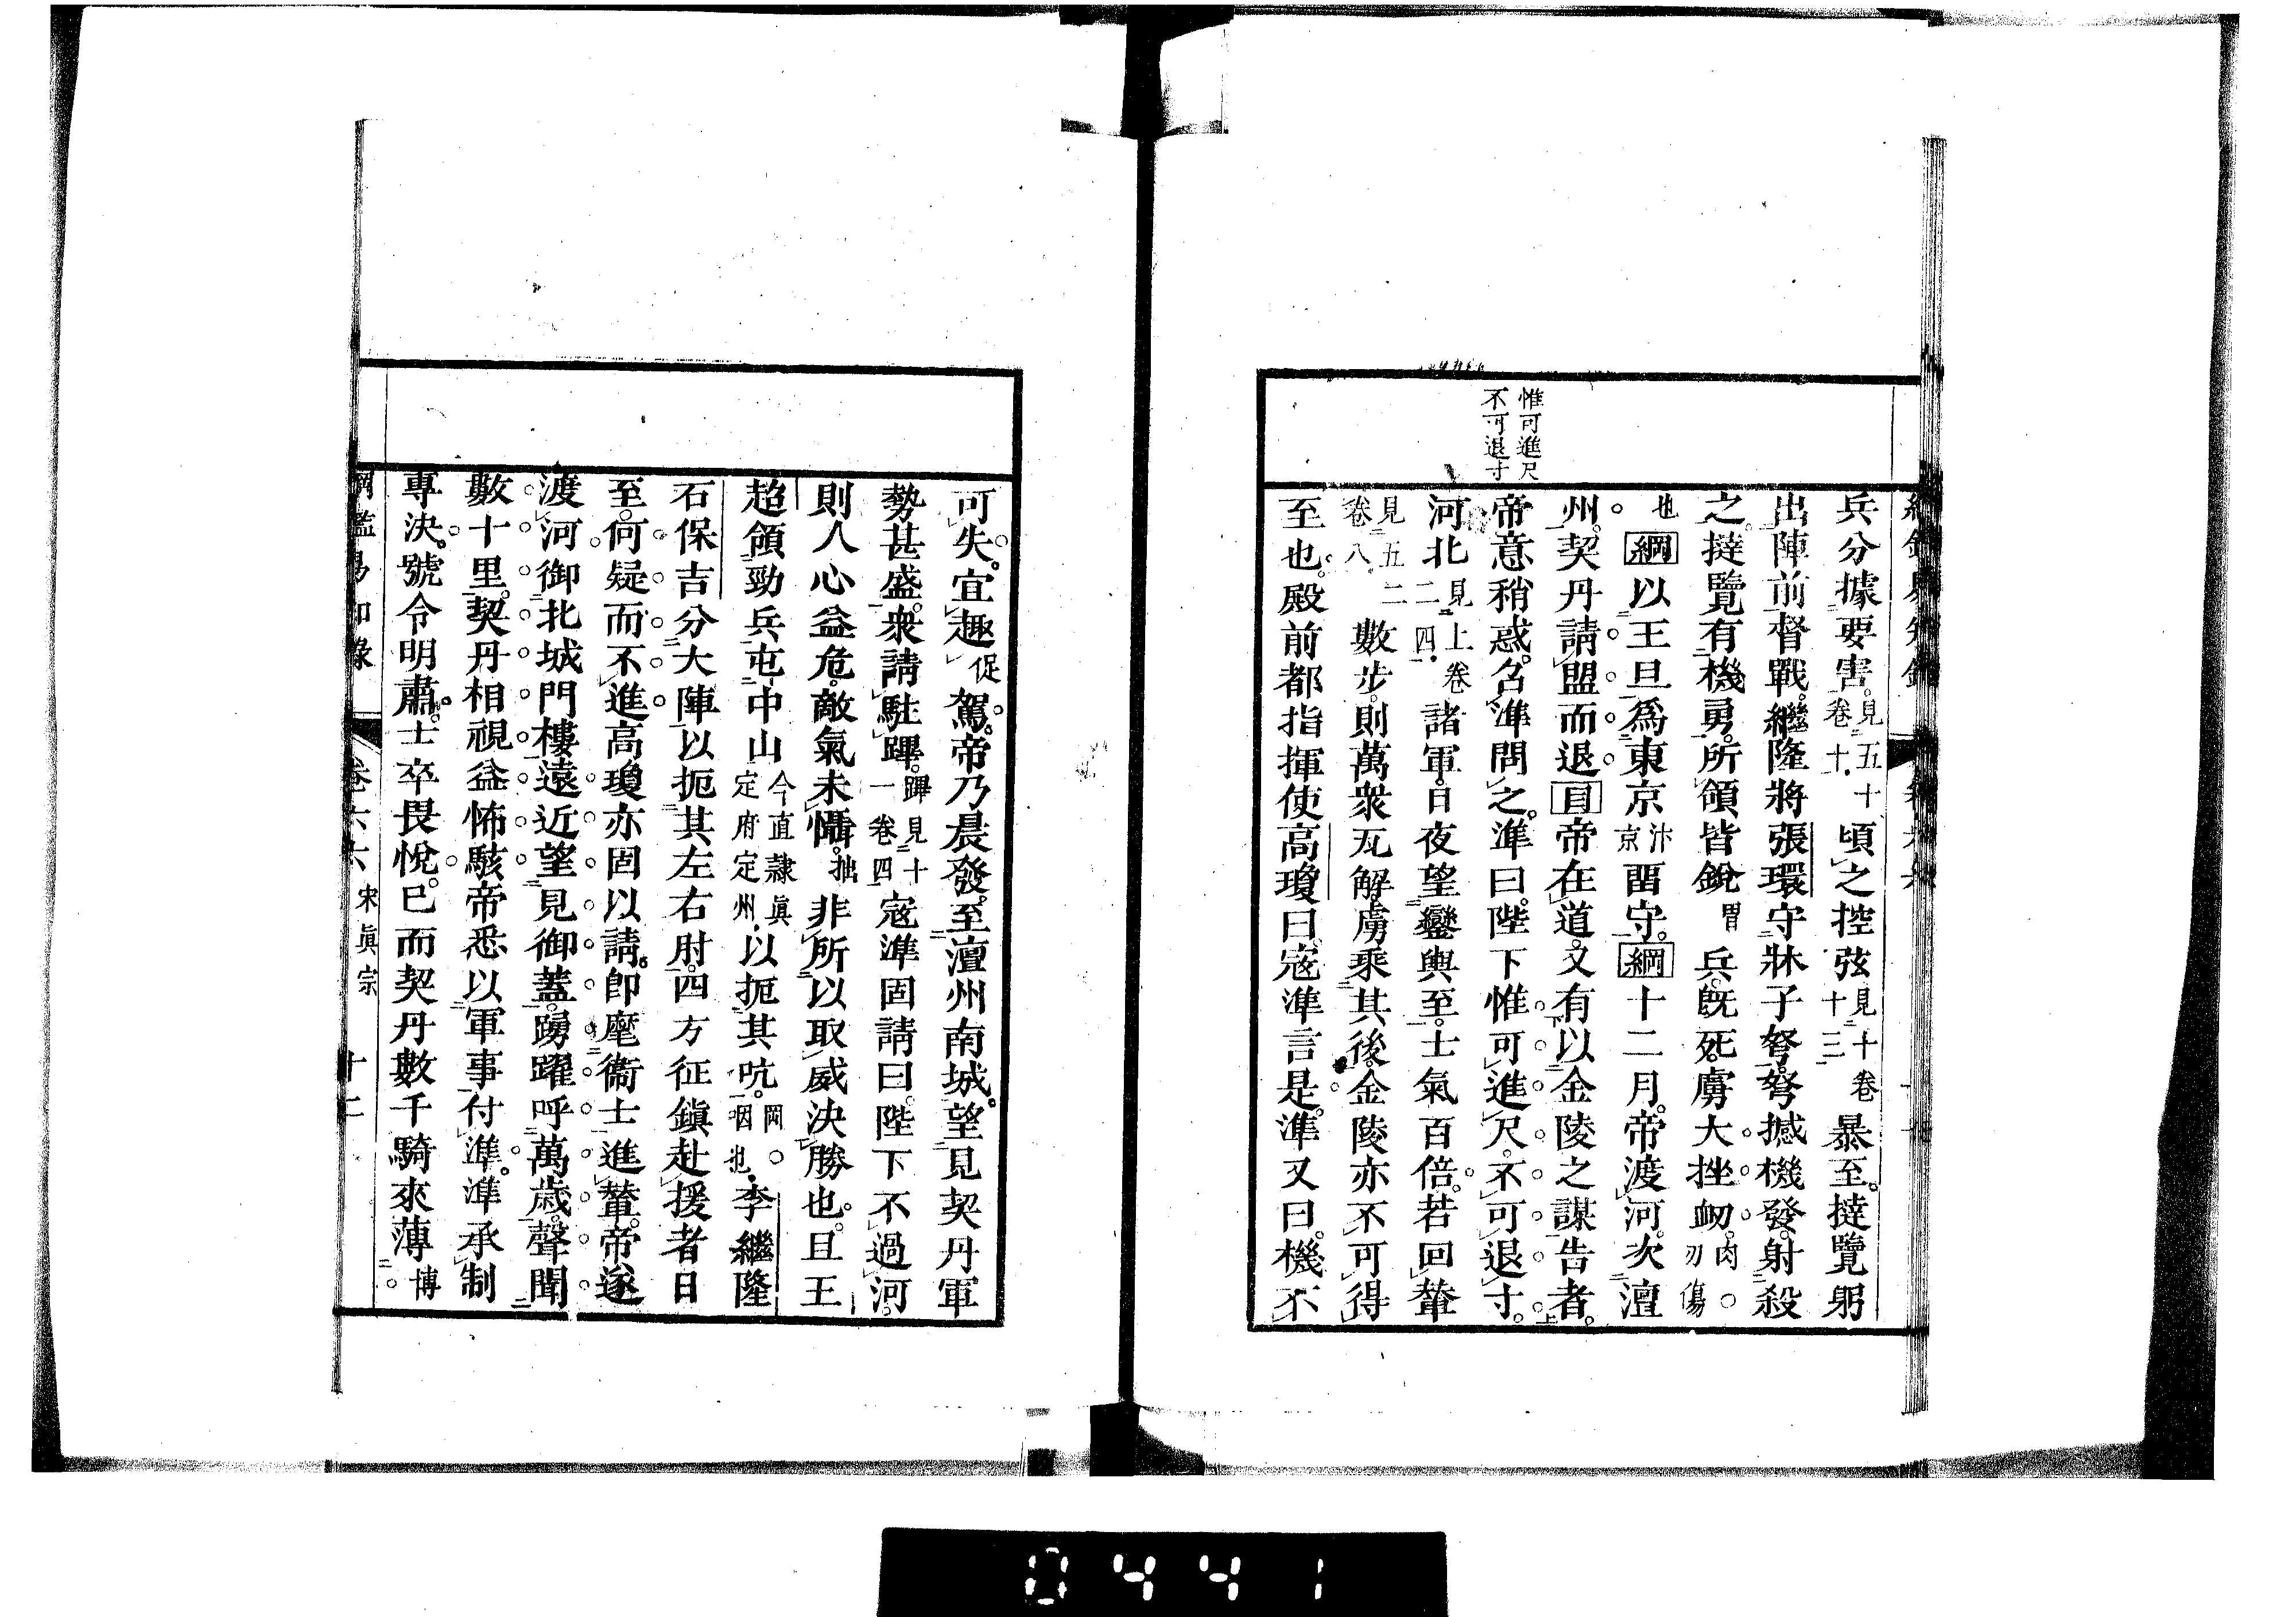 惟可進尺
不可退寸
兵分據要害見五十卷十頃之控弦見十卷十三暴至撻覽躬
出陣前督戰繼隆將張環守牀子弩弩撼機發射殺
之撻覽有機勇所領皆銳胃兵旣死虜大挫衂肉刃傷
也綱以王旦爲東京汴京畱守綱十二月帝渡河次澶
州契丹請盟而退目帝在道又有以金陵之謀告者
帝意稍惑召準問之準曰陛下惟可進尺不可退寸
河北見上卷二四諸軍日夜望鑾輿至士氣百倍若回輦
見五二卷八數步則萬衆瓦解虜乘其後金陵亦不可得
至也殿前都指揮使高瓊曰寇準言是準又曰機不
可失宜趣促駕帝乃晨發至澶州南城望見契丹軍
勢甚盛衆請駐蹕蹕見十一卷四寇準固請曰陛下不過河
則人心益危敵氣未懾拙非所以取威決勝也且王
超領勁兵屯中山今直隸眞定府定州以扼其吭岡咽也李繼隆
石保吉分大陣以扼其左右肘四方征鎭赴援者日
至何疑而不進高瓊亦固以請卽麾衞士進輦帝遂
渡河御北城門樓遠近望見御蓋踴躍呼萬歲聲聞
數十里契丹相視益怖駭帝悉以軍事付準準承制
專決號令明肅士卒畏悅已而契丹數千騎來薄博
綱鑑易知錄 卷六六 宋眞宗 十二
0441